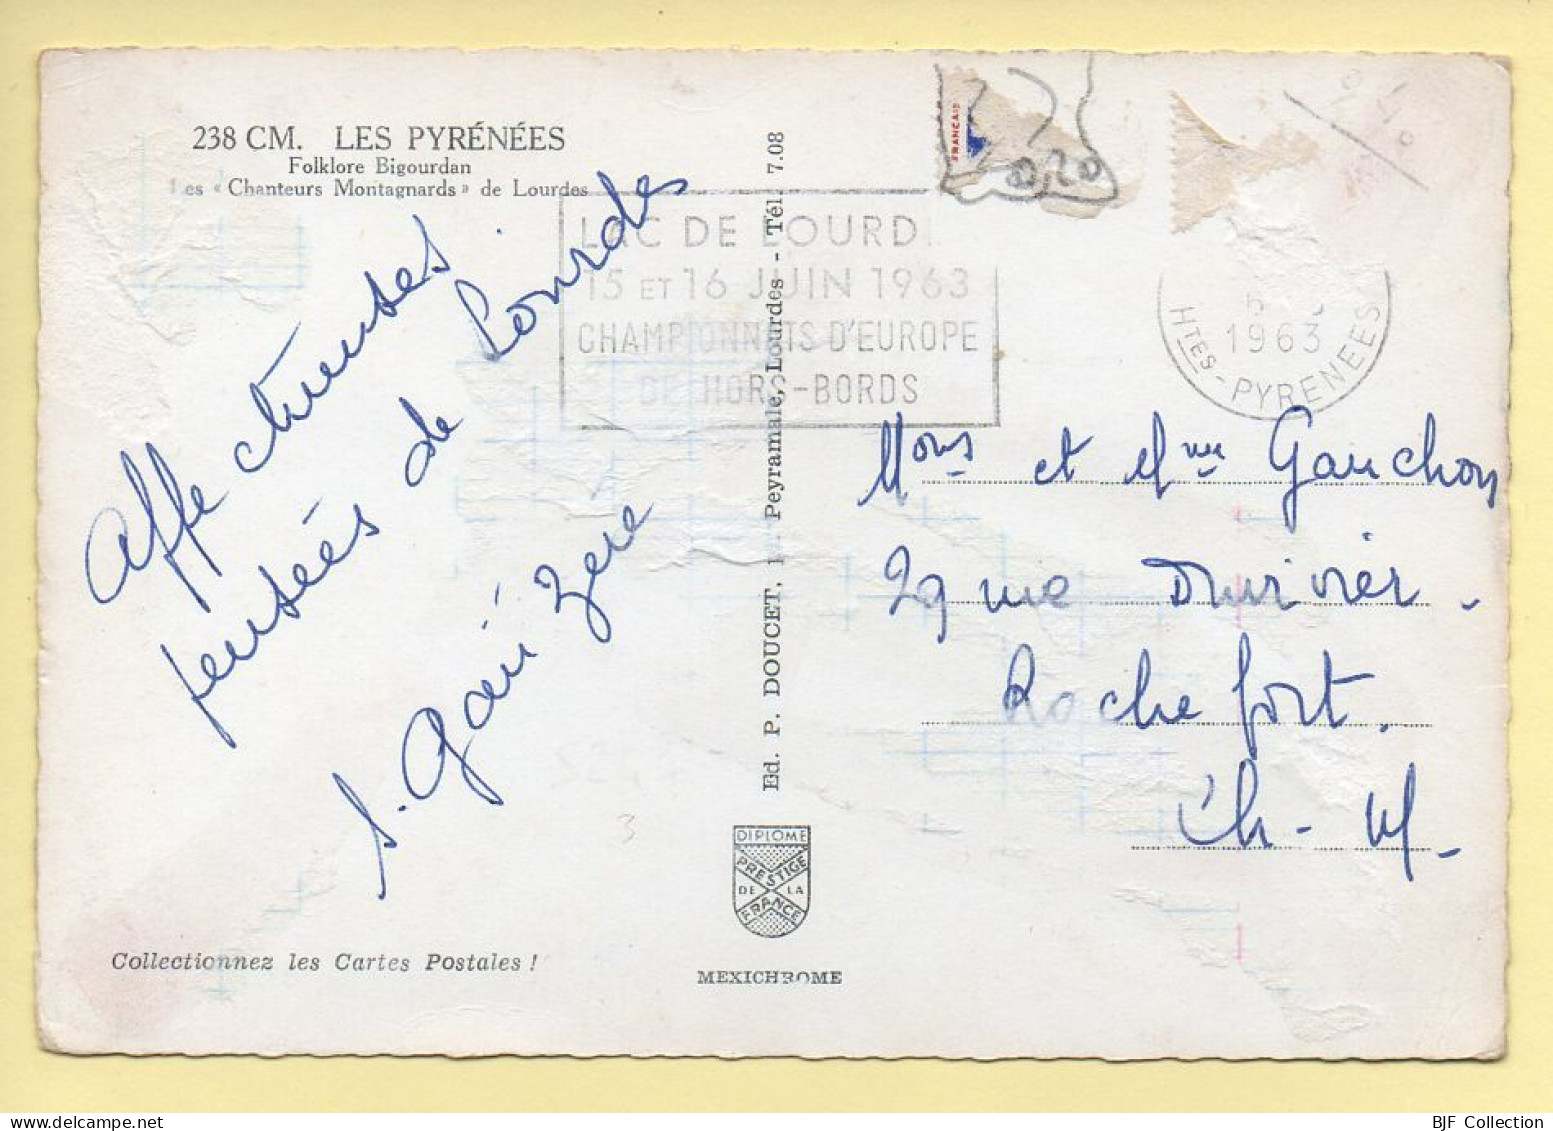 238 CM. LES PYRÉNÉES
Folklore Bigourdan
Les « Chanteurs Montagnards » de Lourdes
Affectueuses
pensées de Lourdes
LAC DE LOURD
15 ET 16 JUIN 1963
CHAMPIONNATS D'EUROPE
DE HORS-BORDS
FRANÇAIS
0,20
1963
HTES-PYRENEES
Mons et Mme Gauchon
29 rue
Rochefort.
Ch-M-
Ed. P. DOUCET, Peyramale, Lourdes - Tél. 7.08
3
DIPLOME
PRESTIGE
DE LA
FRANCE
Collectionnez les Cartes Postales !
MEXICHROME
BJF Collection